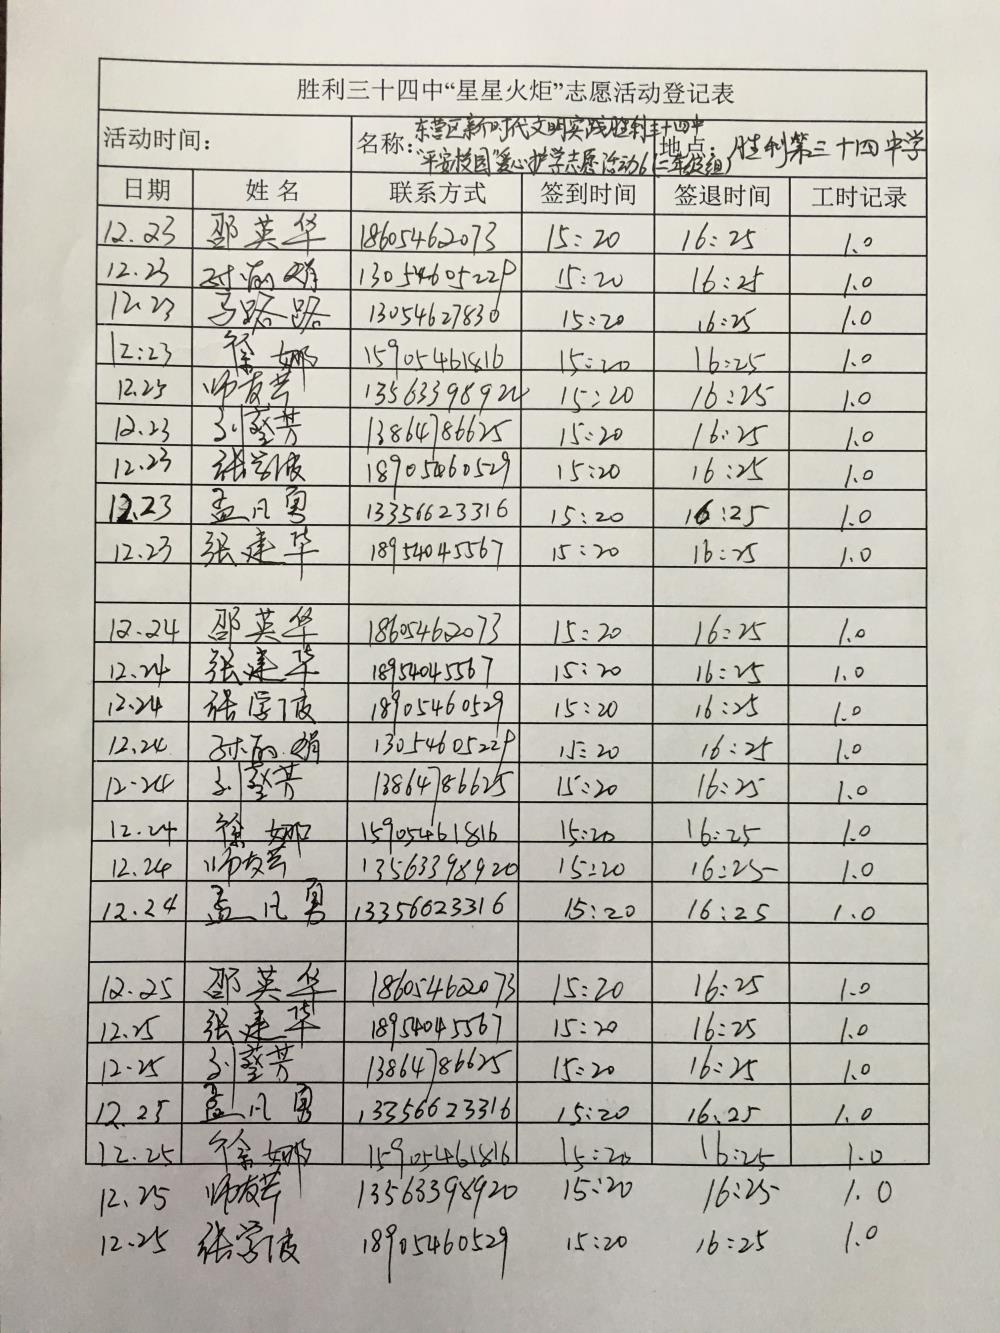 胜利三十四中“星星火炬”志愿活动登记表
活动时间： 名称： 东营区新时代文明实践胜利三十四中 地点： 胜利第三十四中学
“平安校园”爱心护学志愿活动6（二年级组）
日期 姓名 联系方式 签到时间 签退时间 工时记录
12.23 邵英华 18605462073 15:20 16:25 1.0
12.23 娟 13054605229 15:20 16:25 1.0
12.23 马路路 13054627830 15:20 16:25 1.0
12:23 徐娜 15905461816 15:20 16:25 1.0
12.25 师友芹 1356339892 15:20 16:25 1.0
12.23 刘莹芳 13864786625 15:20 16:25 1.0
12.23 张学波 18905460529 15:20 16:25 1.0
12.23 孟凡勇 13356623316 15:20 16:25 1.0
12.23 张建华 18954045567 15:20 16:25 1.0
12.24 邵英华 18605462073 15:20 16:25 1.0
12.24 张建华 18954045567 15:20 16:25 1.0
12.24 张学波 18905460529 15:20 16:25 1.0
12.24 娟 13054605229 15:20 16:25 1.0
12.24 刘莹芳 13864786625 15:20 16:25 1.0
12.24 徐娜 15905461816 15:20 16:25 1.0
12.24 师友芹 13563398920 15:20 16:25 1.0
12.24 孟凡勇 13356623316 15:20 16:25 1.0
12.25 邵英华 18605462073 15:20 16:25 1.0
12.25 张建华 18954045567 15:20 16:25 1.0
12.25 刘莹芳 13864786625 15:20 16:25 1.0
12.25 孟凡勇 13356623316 15:20 16.25 1.0
12.25 徐娜 15905461816 15:20 16:25 1.0
12.25 师友芹 13563398920 15:20 16:25 1.0
12.25 张学波 18905460529 15:20 16:25 1.0